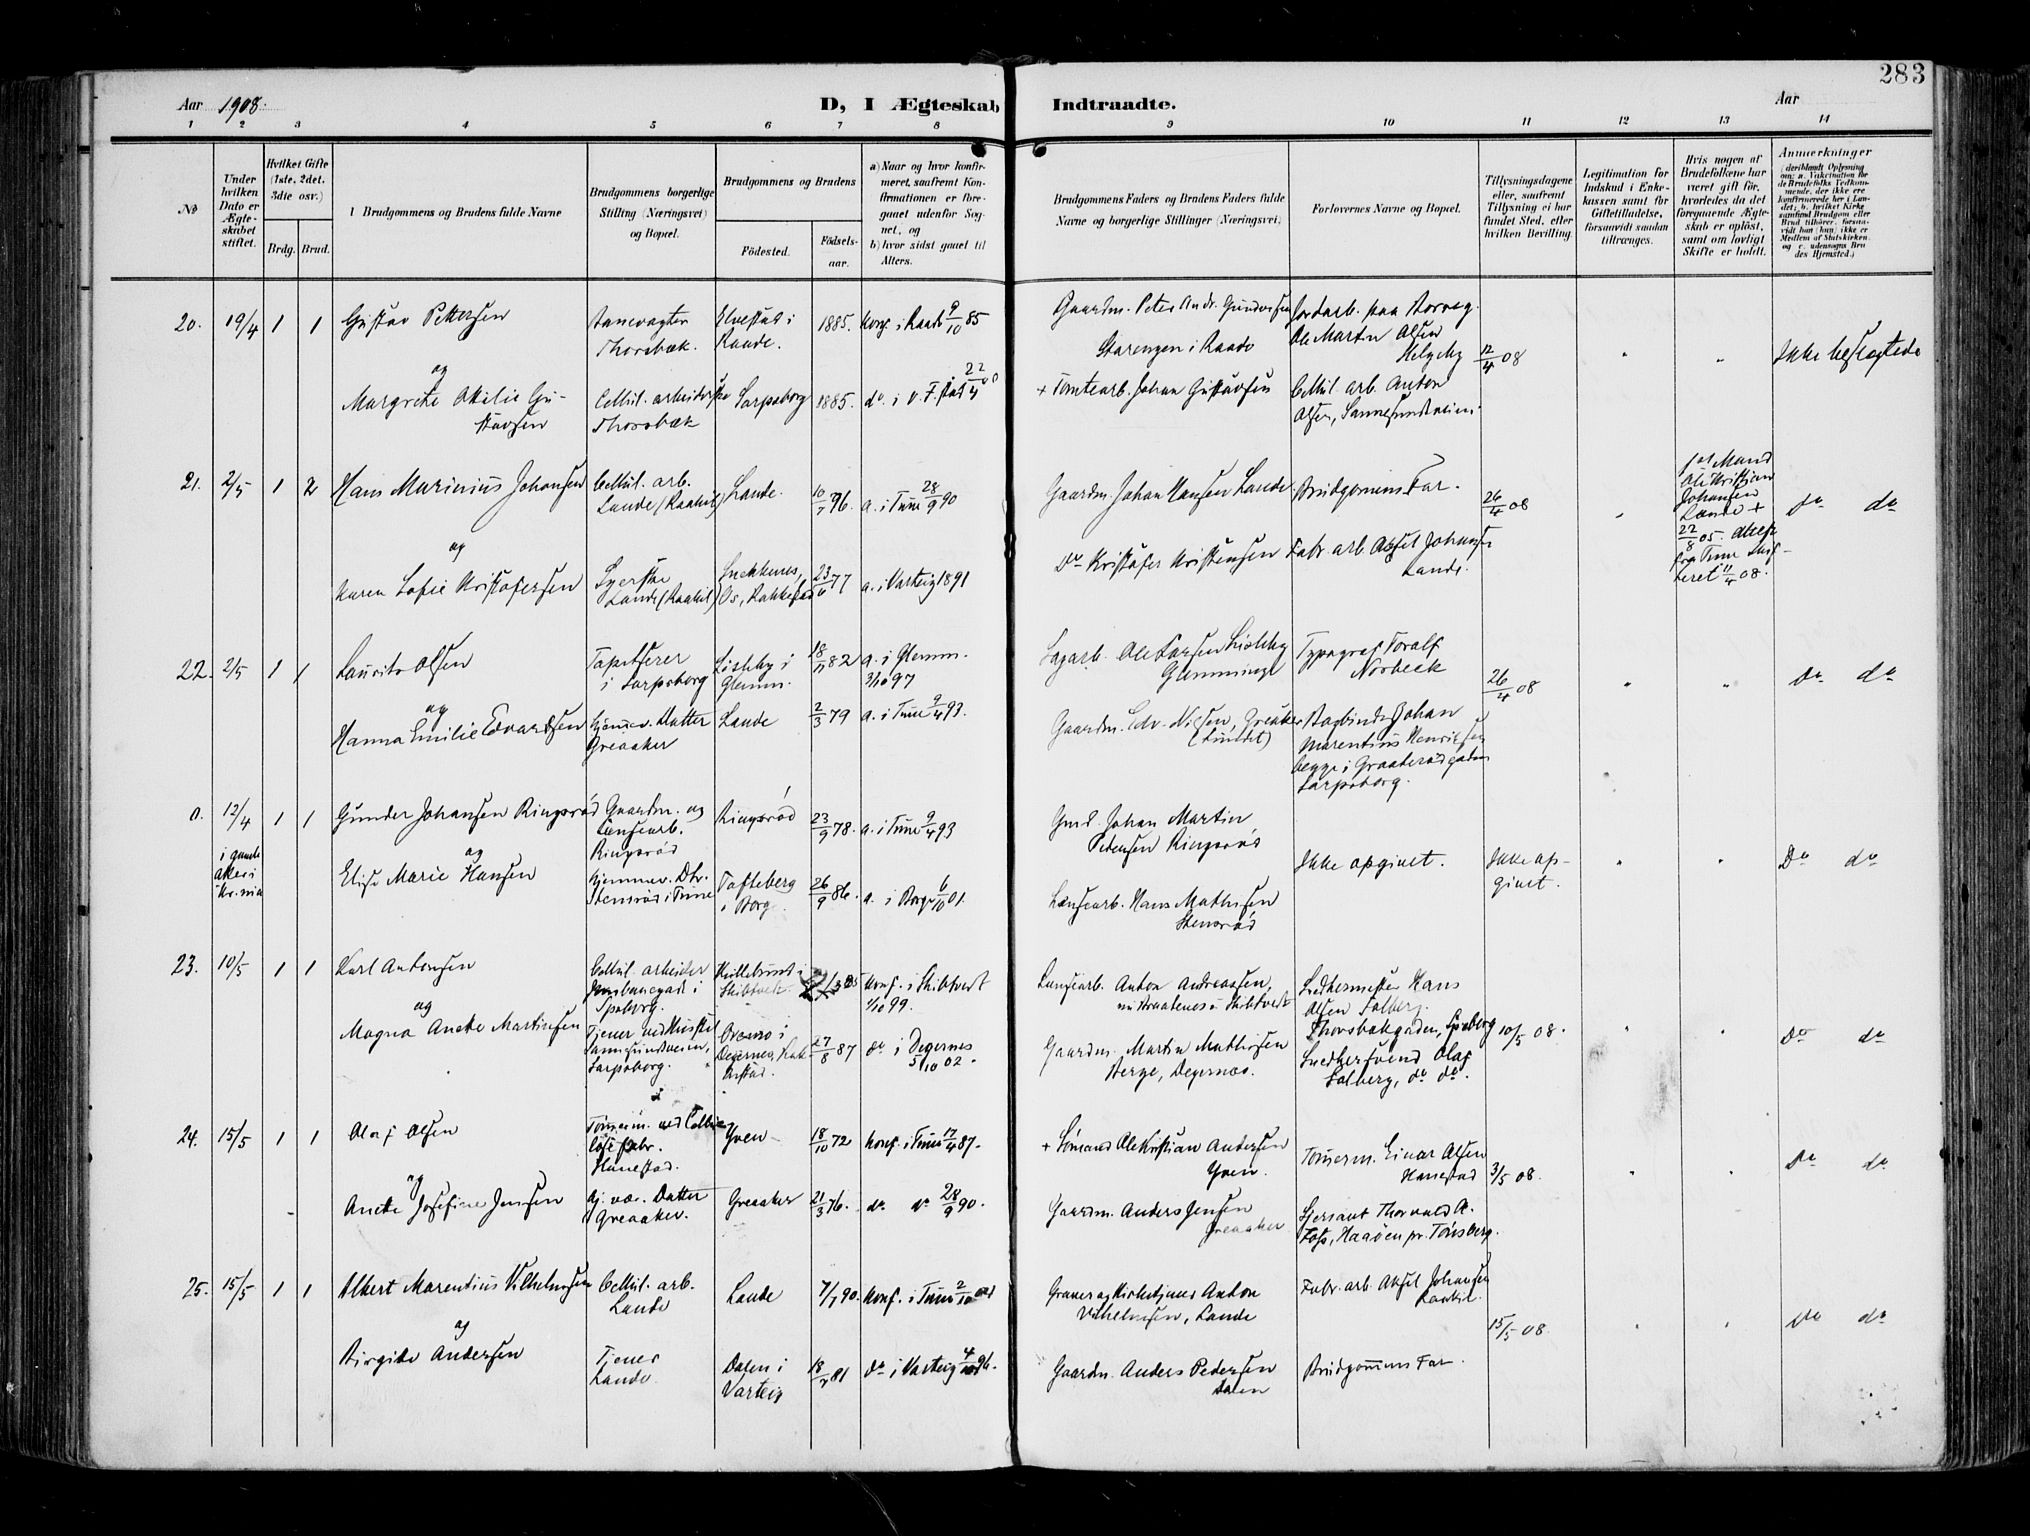 283
Aar 1908.
D, I Ægteskab Indtraadte.
Aar
1 2 3 4 5 6 7 8 9 10 11 12 13 14
No
Under hvilken Dato er Ægteskabet stiftet.
Hvilket Gifte (1ste, 2det, 3die osv.)
Brdg. Brud.
Brudgommens og Brudens fulde Navne
Brudgommens borgerlige Stilling (Næringsvei) og Bopæl.
Brudgommens og Brudens
Fødested.
Fødselsaar.
a) Naar og hvor konfirmeret, saafremt Konfirmationen er foregaaet udenfor Sognet, og
b) hvor sidst gaaet til Alters.
Brudgommens Faders og Brudens Faders fulde Navne og borgerlige Stillinger (Næringsvei).
Forlovernes Navne og Bopæl.
Tillysningsdagene eller, saafremt Tillysning ei har fundet Sted, efter hvilken Bevilling
Legitimation for Indskud i Enkekassen samt for Giftetilladelse, forsaavidt saadan tiltrænges.
Hvis nogen af Brudefolkene har været gift før, hvorledes da det foregaaende Ægteskab er opløst, samt om lovligt Skifte er holdt.
Anmærkninger
20. 19/4 1 1 Gustav Pettersen
Banevagter Thorsbæk.
Elvestad i Raade.
1885. Konf. i Raade 9/10 85
Gaardm. Peter Andr. Gundersen
Starengen i Raade
Ole Martin Olsen
12/4 08
Ikke beslægtede
og
Margrethe Otilie Gustavsen
Cellul. arbeiderske Thorsbæk
Sarpsborg 1885. do. i V. F.stad
+ Tomtearb. Johan Gustavsen
Cellul. arb. Anton Olsen, Sannesundsveien.
21. 2/5 1 2 Hans Marinius Johansen
Cellul. arb. Lande (Raakil)
Lande. 10/7 76. a. i Tune 28/9 90
Gaardm. Johan Hansen Lande
Brudgomens Far.
26/4 08
Mand Ole Kristian Johansen Lande + 22/8 05.
11/4 08.
do do
og
Karen Sofie Kristofersen
Syerske Lande (Raakil)
Os, Rakkestad 23/6 77 a. i Varteig 1891
Do Kristofer Kristensen
Fabr. arb. Aksel Johansen Lande.
22. 2/5 1 1 Laurits Olsen
Tapetserer i Sarpsborg
Lisleby i Glemm. 18/11 82 a. i Glemm. 3/10 97
Sagarb. Ole Larsen Lisleby Glemminge
Typograf Toralf Norbeck
26/4 08
Do do
og
Hanna Emilie Edvardsen
Hjemmev. Datter Greaaker
Lande 2/3 79 a. i Tune 9/4 93.
Gaardm. Edv. Nilsen, Greaaker
Bogbinder Johan Marentius Henriksen
begge i Graaterødgaden Sarpsborg.
0. 12/4 1 1 Gunder Johansen Ringsrød
i gamle Aker i Kr.nia
Gaardm. og Lænsearb. Ringsrød
Ringsrød 23/9 78. a. i Tune 9/4 93
Gmd. Johan Martin Pedersen Ringsrød
Ikke opgivet.
Ikke opgivet.
Do do
og
Elise Marie Hansen
Hjemmev. Dtr. Stensrød i Tune
Tofteberg i Borge 26/9 86. a. i Borge 6/10 01.
Lænsearb. Hans Mathisen Stensrød
23. 10/5 1 1 Karl Antonsen
Cellul. arbeider Jernbanegad. i Spsborg.
Skibtvet
Konf. i Skibtvedt 1/10 99.
Lænsearb. Anton Andreassen,
Skibtvedt
Snedkermester Hans Olsen Solberg.
Thorsbækgaden, Spsborg 10/5 08.
Do do
og
Magna Anette Martinsen
Sannesundsveien, Sarpsborg.
Degernes, Rakkestad. 27/8 87 do i Degernes 5/10 02.
Gaardm. Martin Mathisen Berge, Degernes.
Snedkersvend Olaf Solberg, do do.
24. 15/5 1 1 Olaf Olsen
Hanestad.
Yven 18/10 72 Konf. i Tune 17/4 87.
+ Sømand Ole Kristian Andersen Yven.
Tømerm. Einar Olsen Hanestad 3/5 08.
Do do
og
Anette Josefine Jensen
Hj. vær. Datter Greaaker.
Greaaker 21/3 76. do. do 28/9 90.
Gaardm. Anders Jensen Greaaker
Sjersant Thorvald A. Foss, Haaøen pr. Tønsberg.
25. 15/5 1 1 Albert Marentius Vilhelmsen
Cellul. arb. Lande
Lande 7/1 90. Konf. i Tune 2/10 04
Graver og Kirketjener Anton Vilhelmsen, Lande
Fabr. arb. Aksel Johansen Raakil.
15/5 08.
do do
og
Birgitte Andersen
Tjener Lande.
Dalen i Varteig 18/7 81 do i Varteig 4/10 96.
Gaardm. Anders Pedersen Dalen
Brudgommens Far.